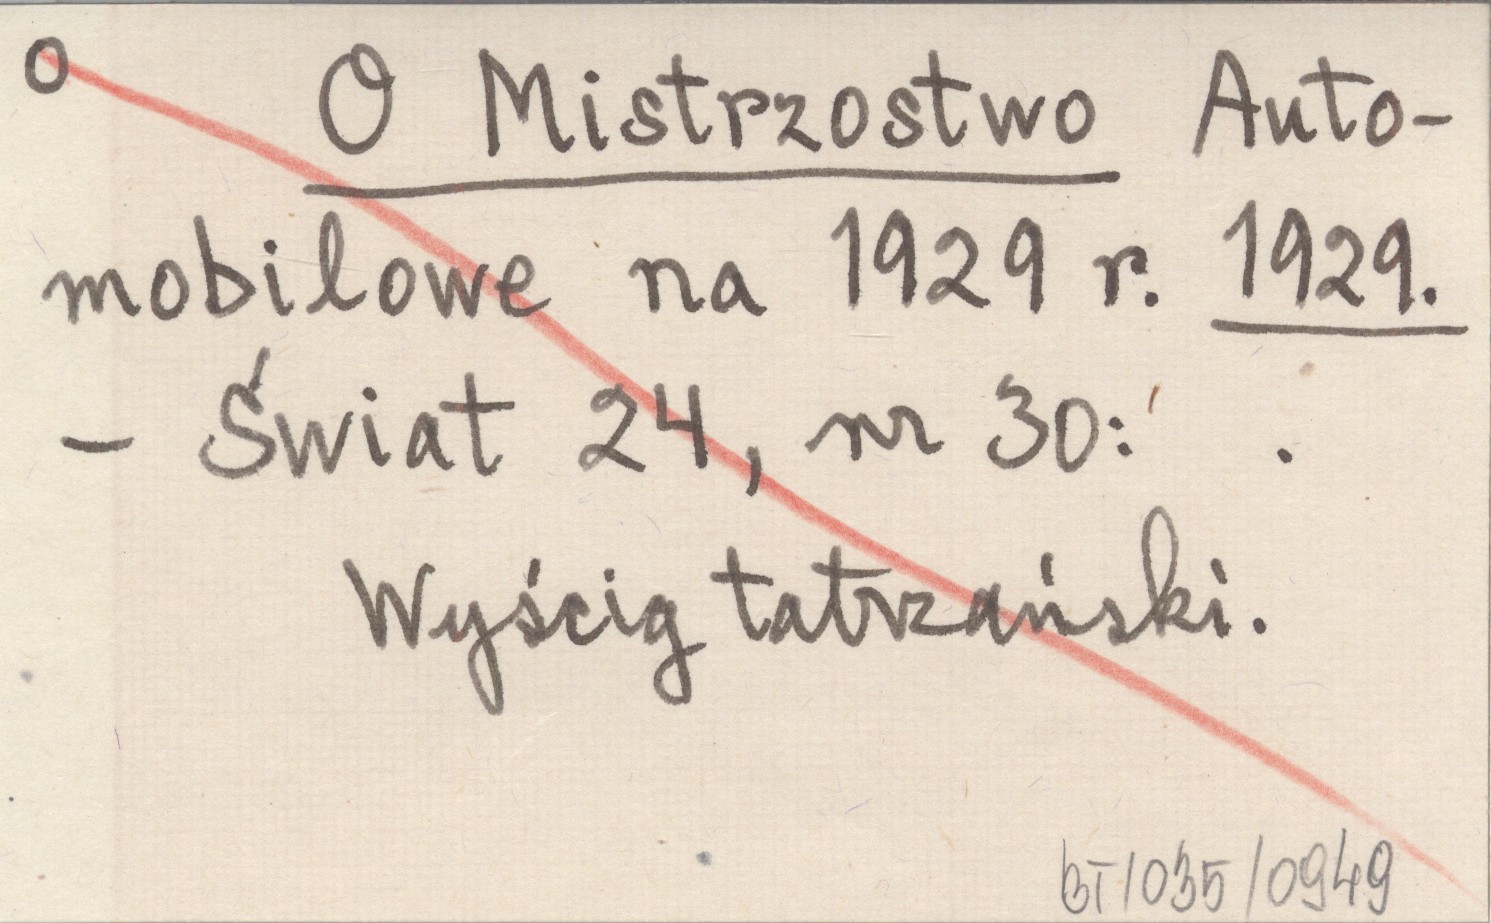 o O Mistrzostwo Auto-
mobilowe na 1929 r. 1929.
- Świat 24, nr 30: .
Wyścig tatrzański.
BT/035/0949